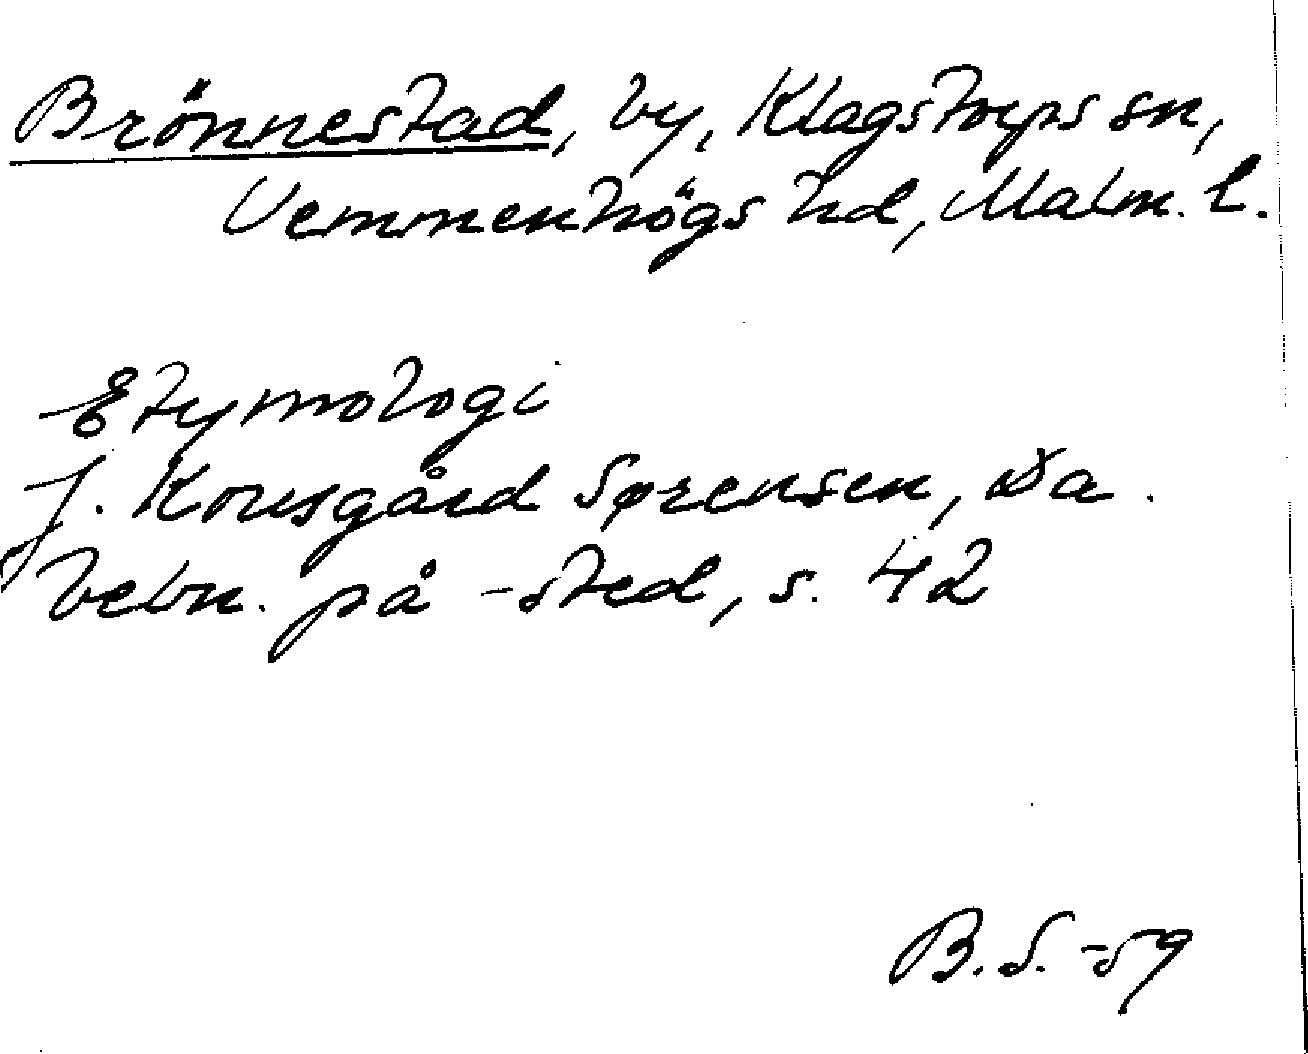 Brönnestad, by, Klagstorps sn,
Vemmenhögs hd, Malm. l.
Etymologi
J. Kousgård Sørensen, Da.
bebn. på -sted, s. 42
B.S. -59